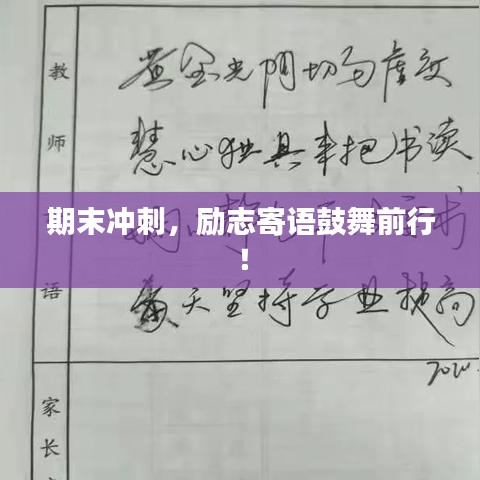 教师
黄金光阴切勿虚度
慧心独具来把书读
书
期末冲刺，励志寄语鼓舞前行
！
语
每天坚持学业提高
家长